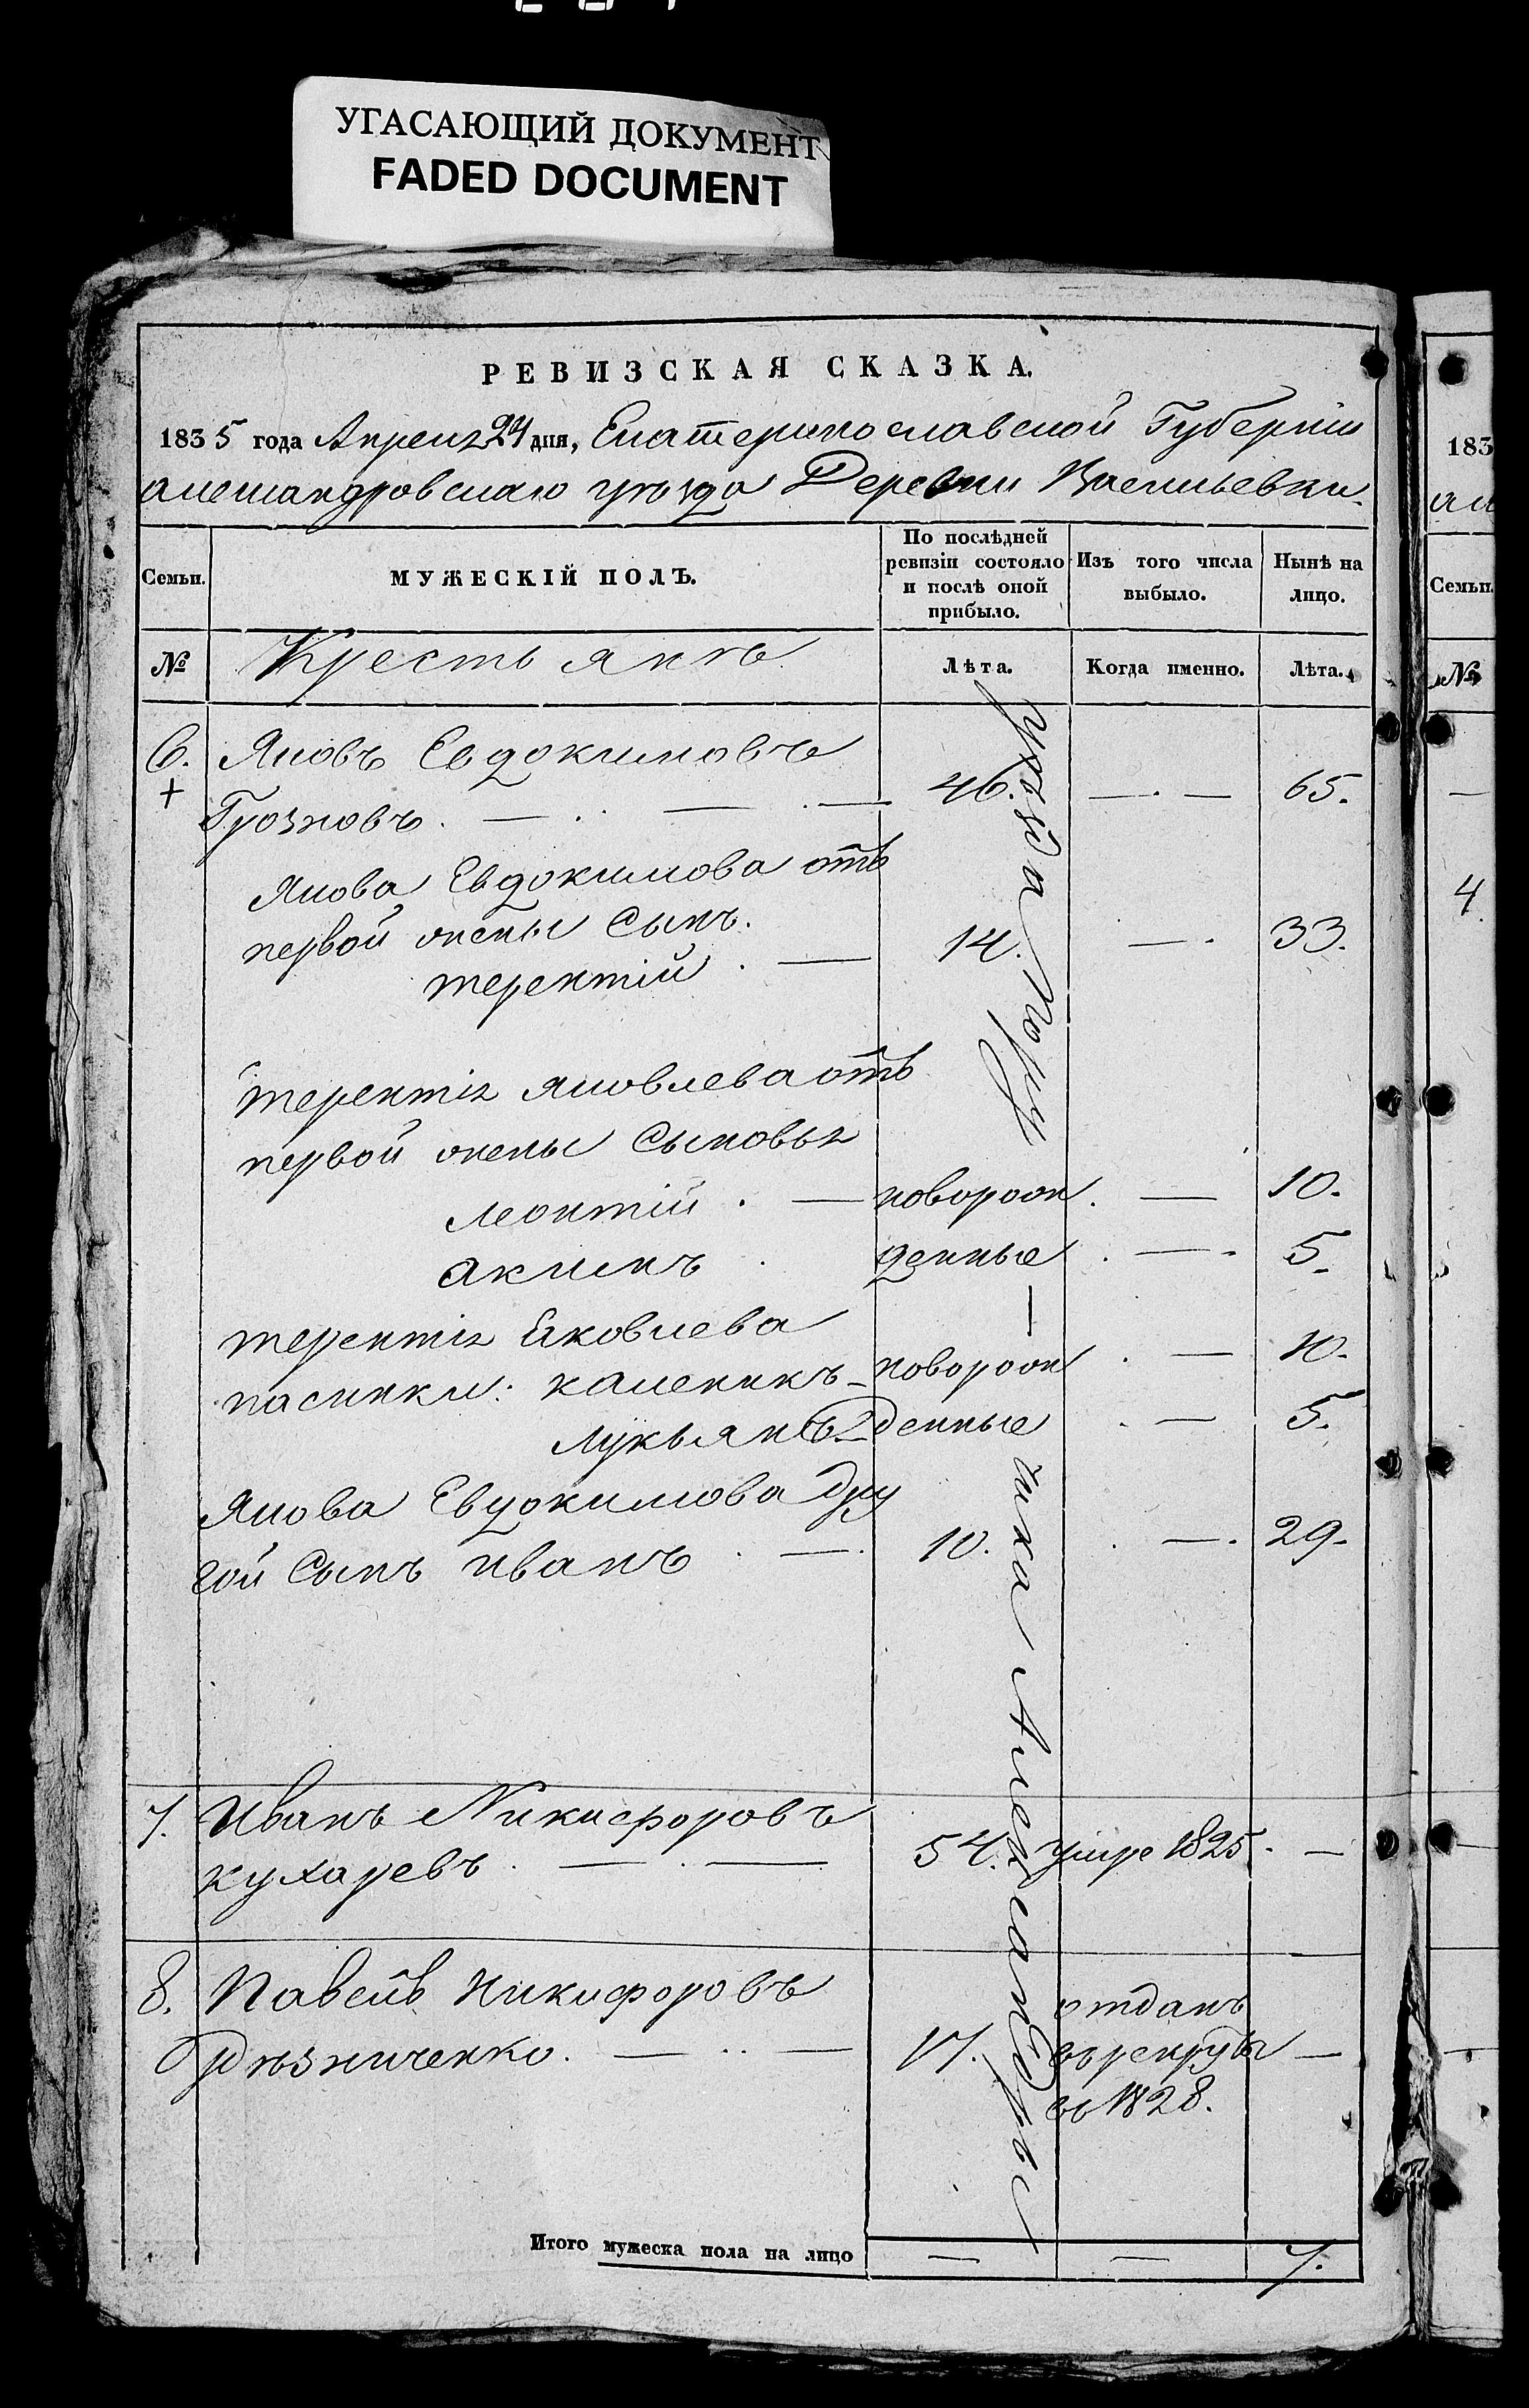 УГАСАЮЩИЙ ДОКУМЕНТ
FADED DOCUMENT
РЕВИЗСКАЯ СКАЗКА.
1835 года Апреля 24 дня, Екатеринославской Губерніи
александровскаго уѣзда Деревни Васильевки.
Семьи.
МУЖЕСКІЙ ПОЛЪ.
По послѣдней ревизіи состояло и послѣ оной прибыло.
Изъ того числа выбыло.
Нынѣ на лицо.
№
Крестьянъ
Лѣта.
Когда именно.
Лѣта.
6. Яковъ Евдокимовъ
+ Грозновъ. — 46. — 65.
Якова Евдокимова отъ
первой жены Сынъ.
терентій — 14. — 33.
терентія яковлева отъ
первой жены Сыновья
леонтій — новорож — 10.
акимъ денные — 5.
терентія яковлева
пасинки: каленикъ — новорож — 10.
лукьянъ денные — 5.
Якова Евдокимова дру
гой Сынъ иванъ — 10. — 29.
7. Иванъ Никифоровъ
кухаревъ — 54. умре 1825. —
8. Павелъ Никифоровъ
отданъ
17. въ рекруты —
въ 1828.
Итого мужеска пола на лицо — — 7.
183
Семьи.
№
4